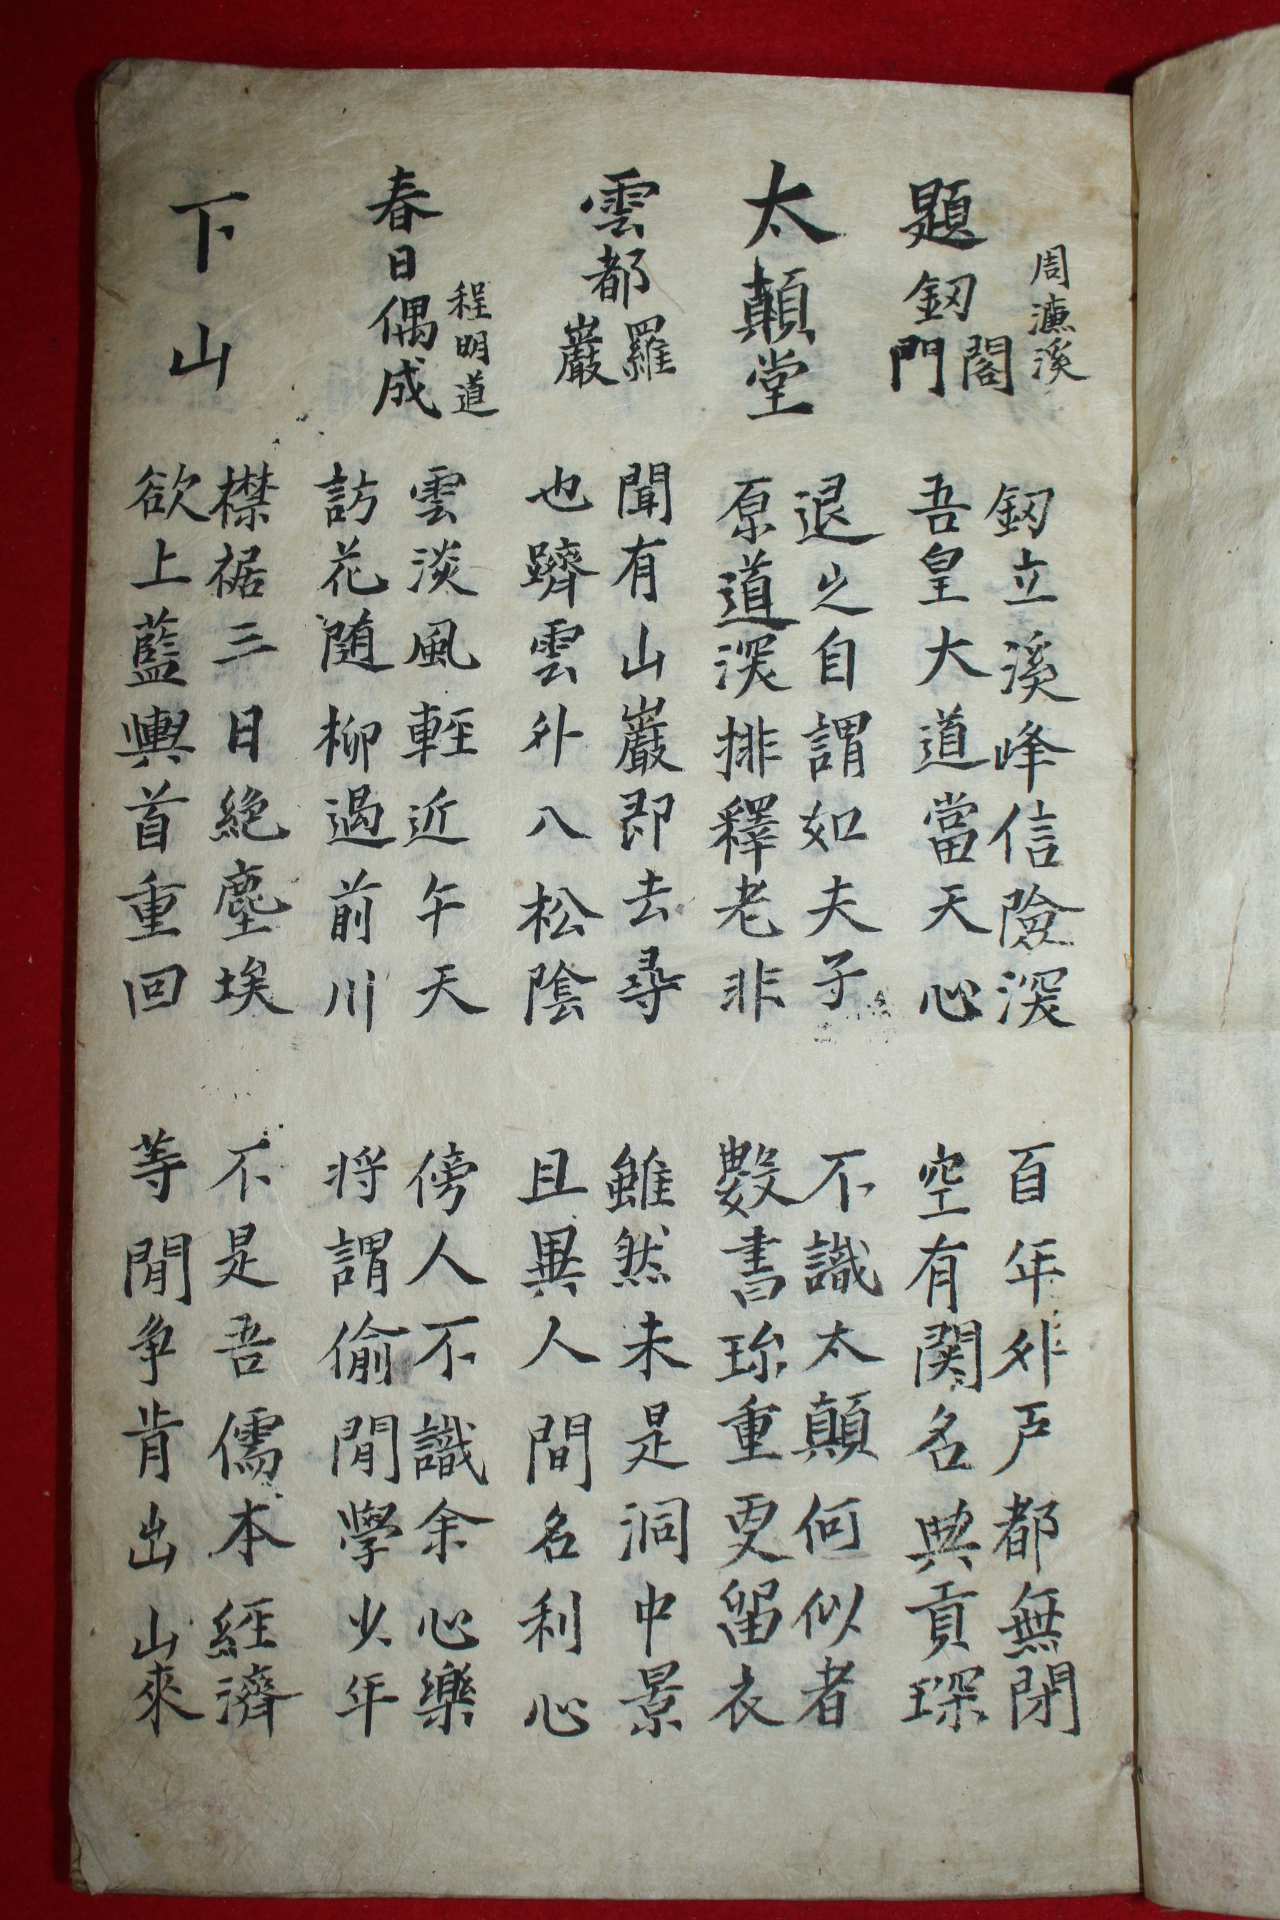 周濂溪
題釼閣門
釼立溪峰信險深
吾皇大道當天心
百年外戶都無閉
空有関名典貢琛
太顛堂
退之自謂如夫子
原道深排釋老非
不識太顛何似者
數書珎重更留衣
雲都羅巖
聞有山巖即去尋
也躋雲外八松陰
雖然未是洞中景
且異人間名利心
程明道
春日偶成
雲淡風輕近午天
訪花随柳過前川
傍人不識余心樂
将謂偷閒學少年
下山
襟裾三日絶塵埃
欲上藍輿首重回
不是吾儒本經濟
等閒争肯出山來